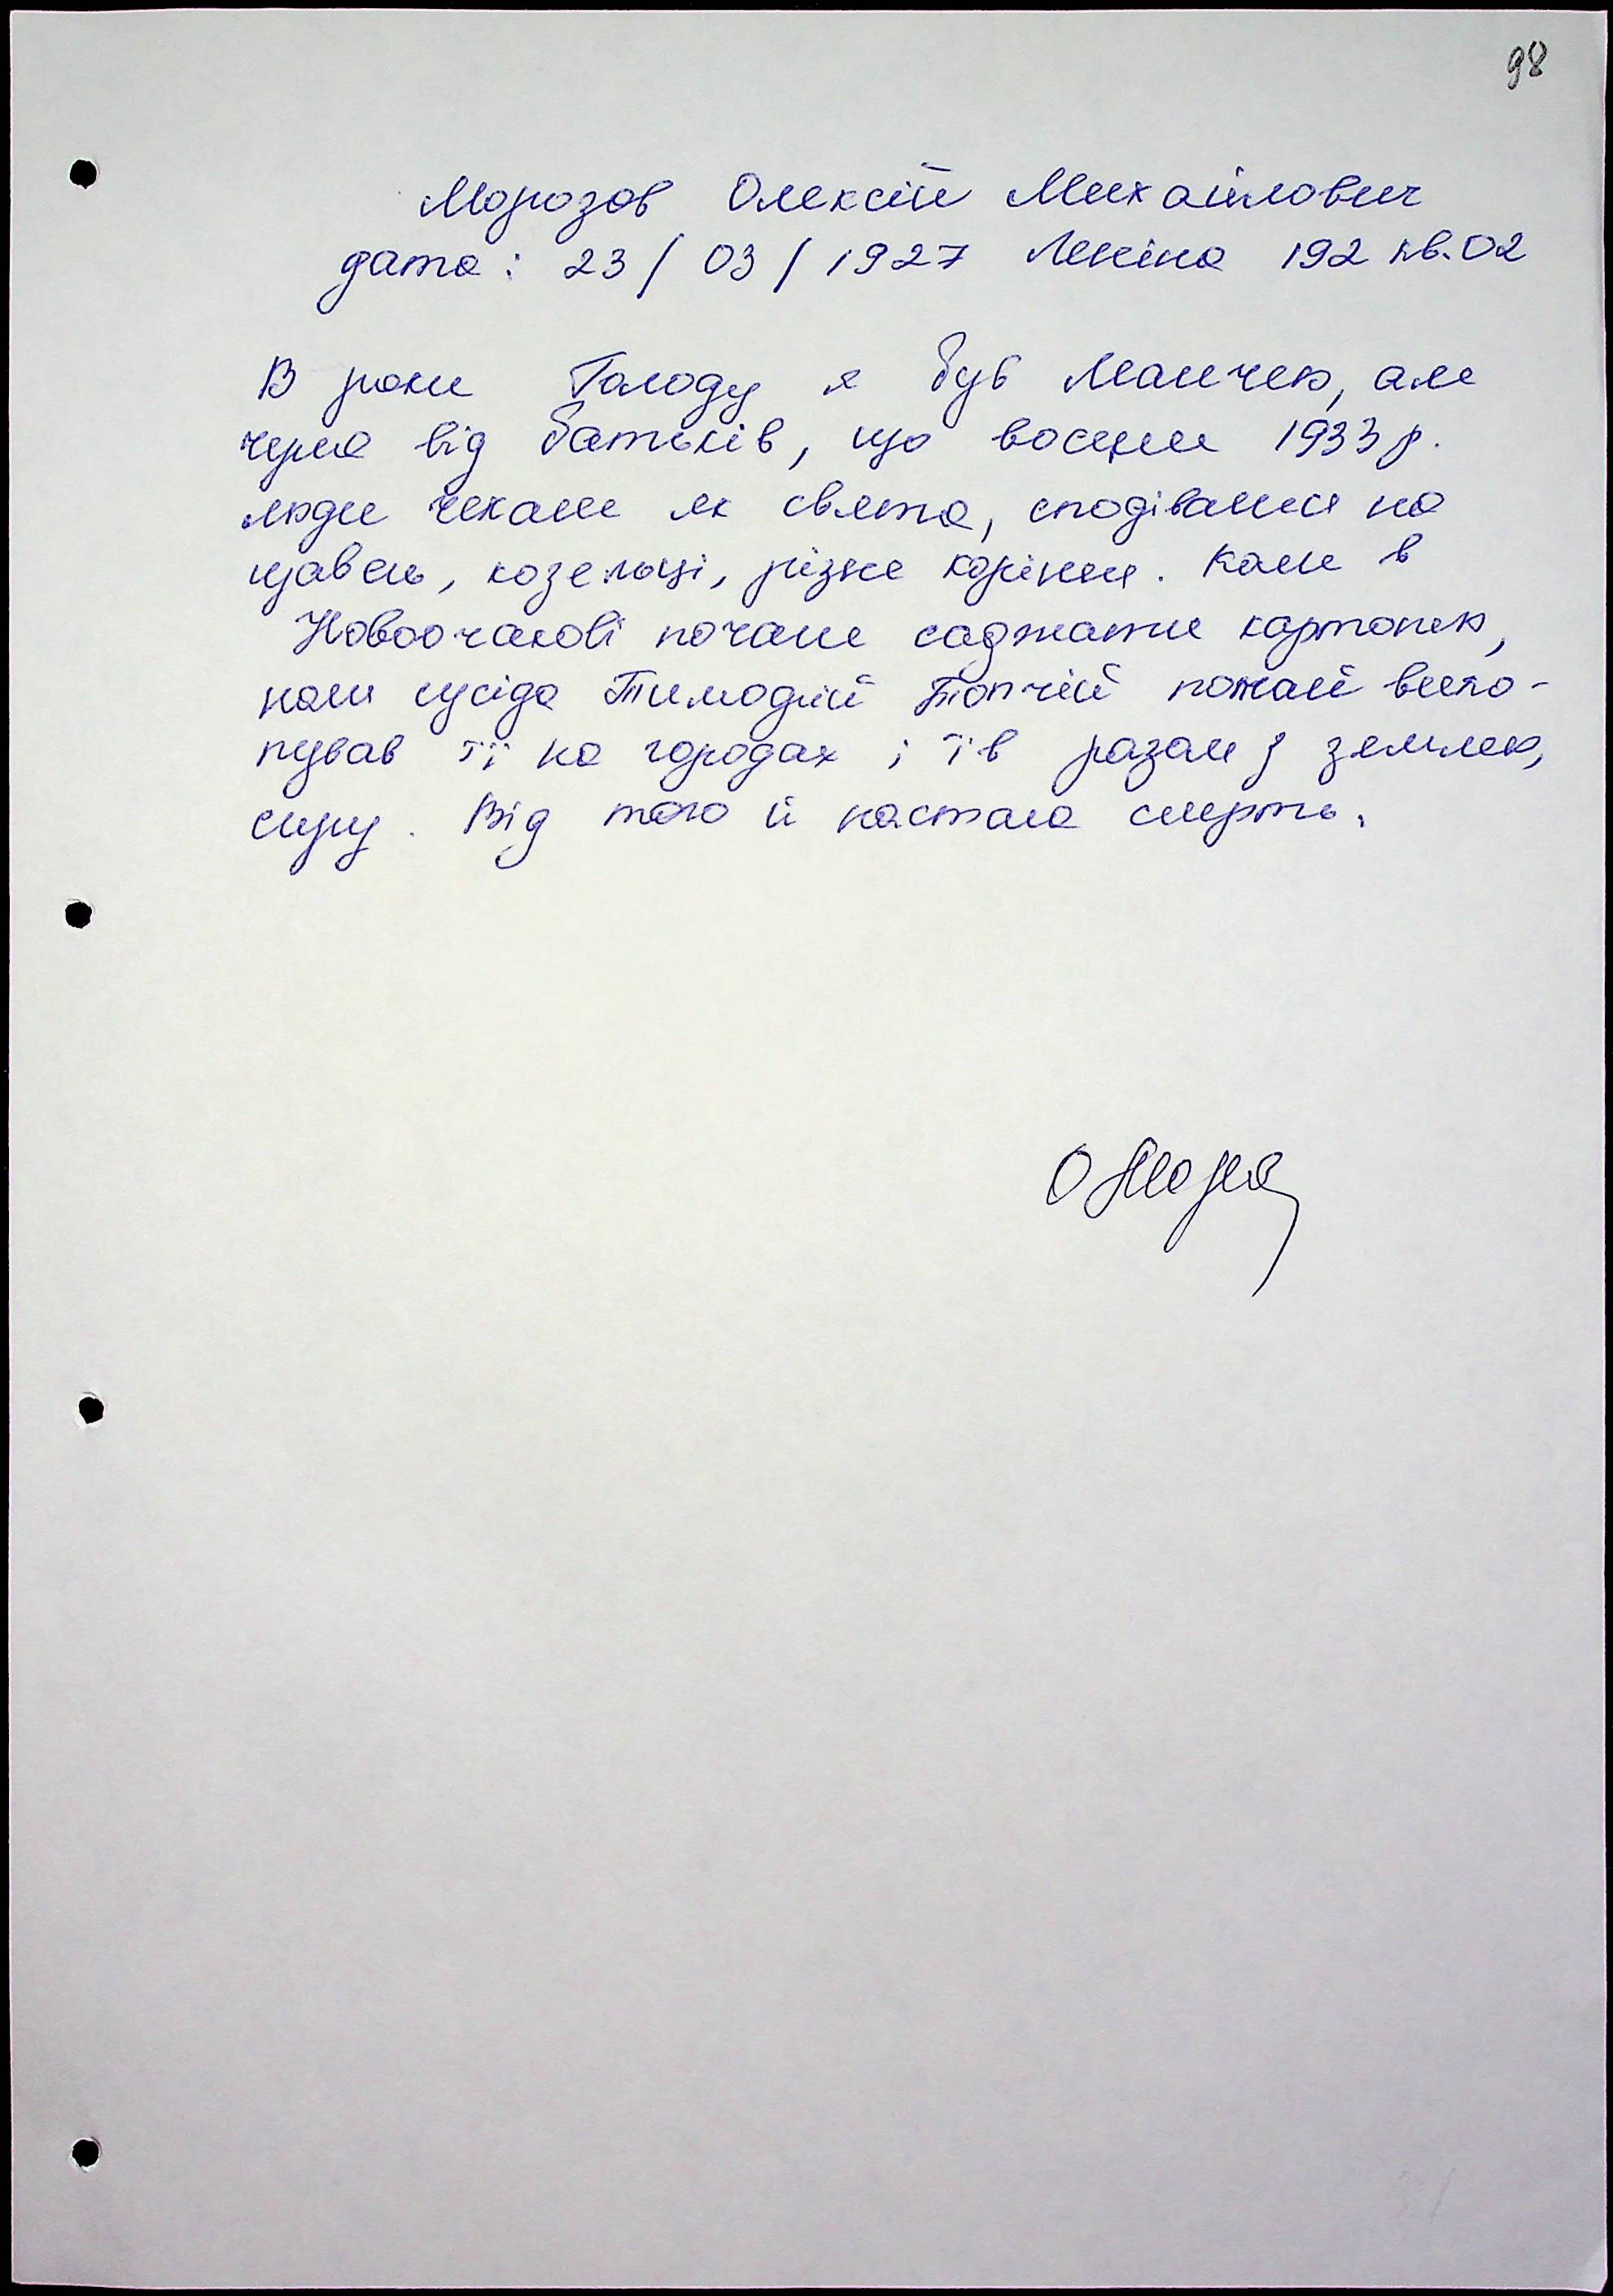 98
Морозов Олексій Михайлович
дата: 23/03/1927 Леніна 192 кв.02
В роки Голоду я був малечею, але
чула від батьків, що восени 1933 р.
люди чекали як свята, сподівались на
щавель, козельці, різне коріння. Коли в
Новоочакові почали саджати картоплю,
наш сусіда Тимофій Топчій почав вико-
пував її на городах і їв разом з землею,
сиру. Від того й настала смерть.